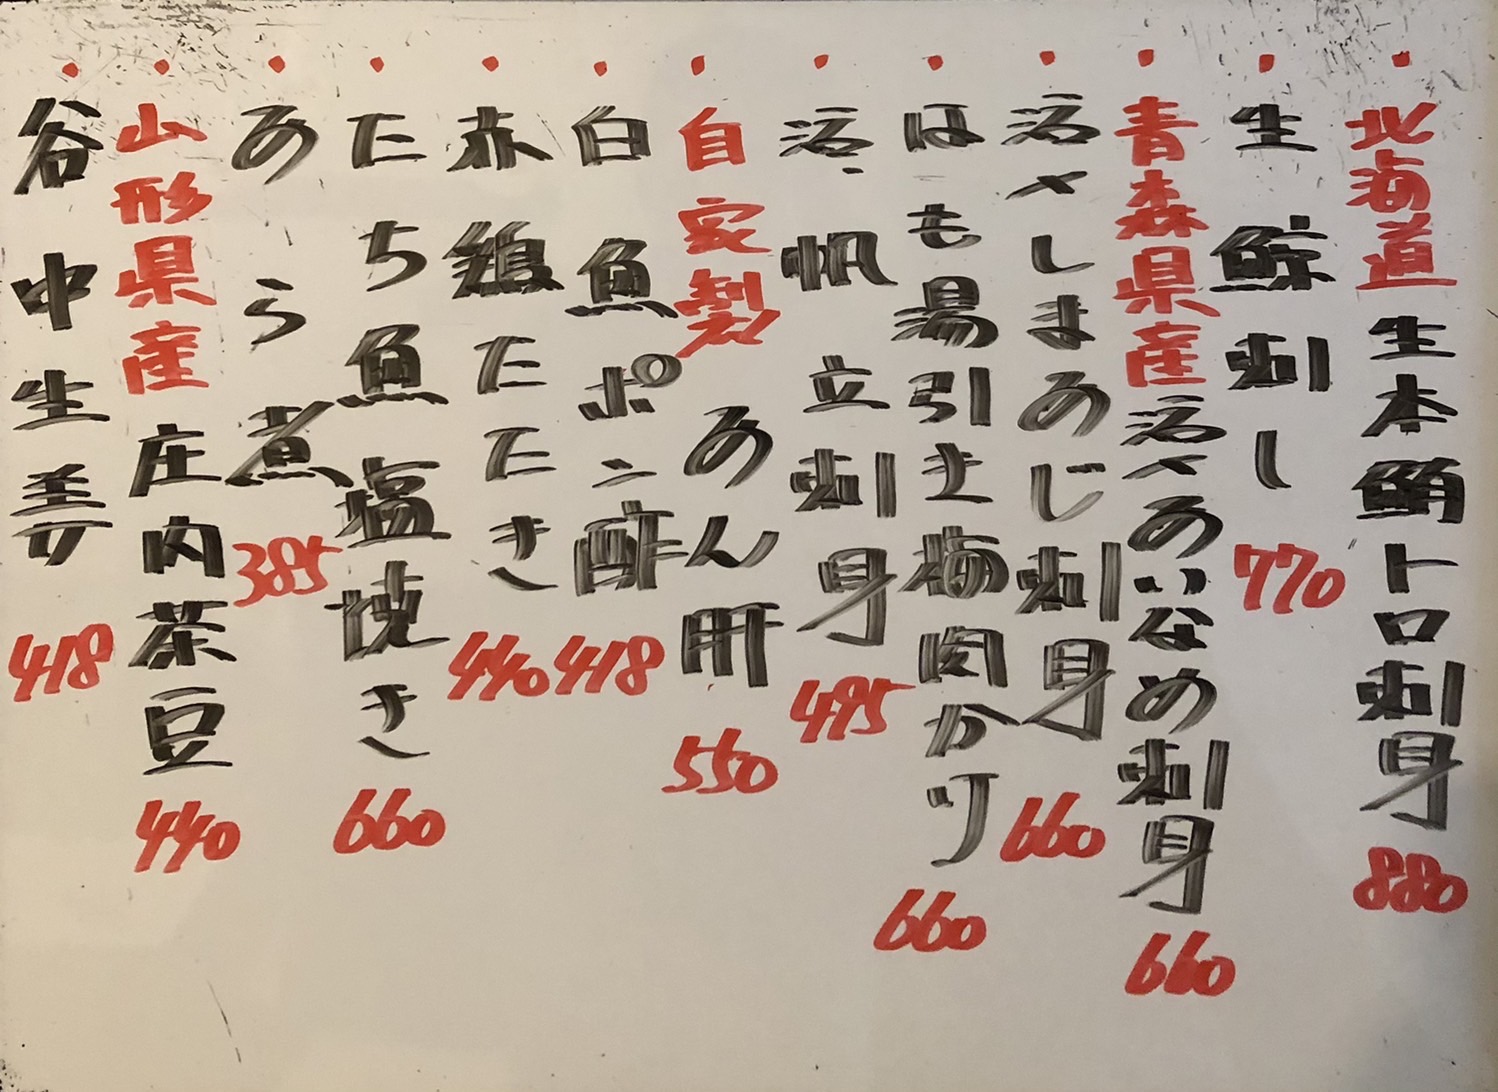 ・北海道生本鮪トロ刺身 880
・生鯨刺し 770
・青森県産活〆あいなめ刺身 660
・活〆しまあじ刺身 660
・はも湯引き梅肉かり 660
・活帆立刺身 495
・自家製あん肝 550
・白魚ポン酢 418
・赤鶏たたき 440
・たち魚塩焼き 660
・あら煮 385
・山形県産庄内茶豆 440
・谷中生姜 418